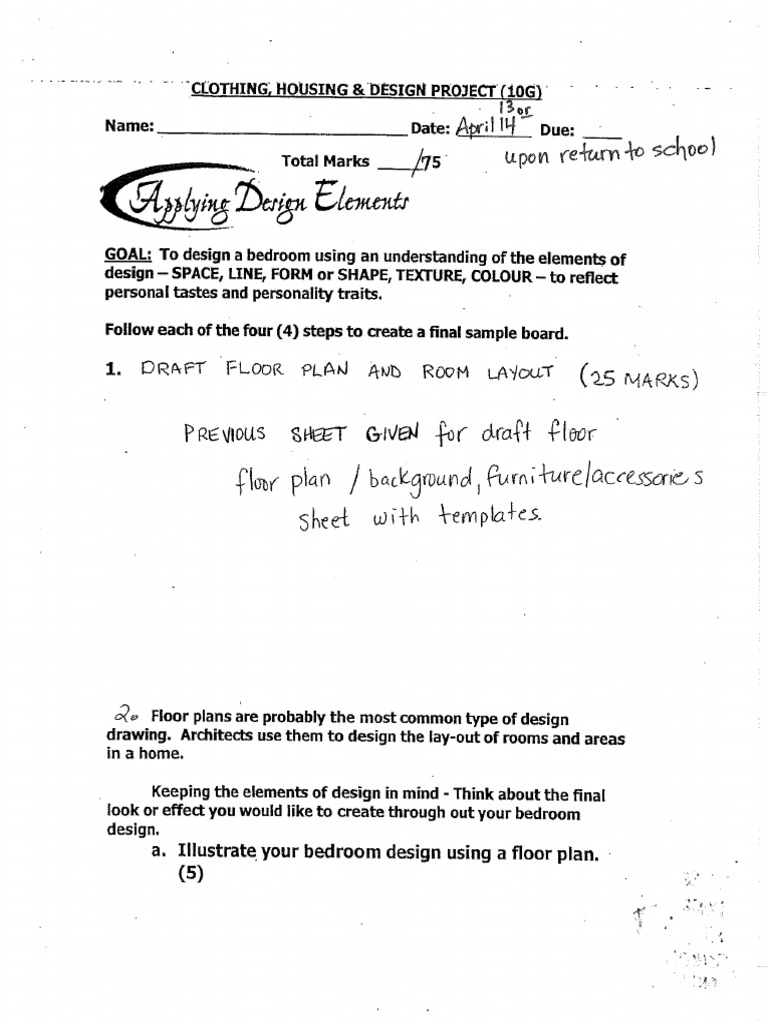 CLOTHING, HOUSING & DESIGN PROJECT (10G)
13 or
Name: ____________________ Date: April 14 Due: _____
upon return to school
Total Marks ____/75
Applying Design Elements
GOAL: To design a bedroom using an understanding of the elements of
design – SPACE, LINE, FORM or SHAPE, TEXTURE, COLOUR – to reflect
personal tastes and personality traits.
Follow each of the four (4) steps to create a final sample board.
1. DRAFT FLOOR PLAN AND ROOM LAYOUT (25 MARKS)
PREVIOUS SHEET GIVEN for draft floor
floor plan / background, furniture/accessories
sheet with templates.
2. Floor plans are probably the most common type of design
drawing. Architects use them to design the lay-out of rooms and areas
in a home.
Keeping the elements of design in mind - Think about the final
look or effect you would like to create through out your bedroom
design.
a. Illustrate your bedroom design using a floor plan.
(5)